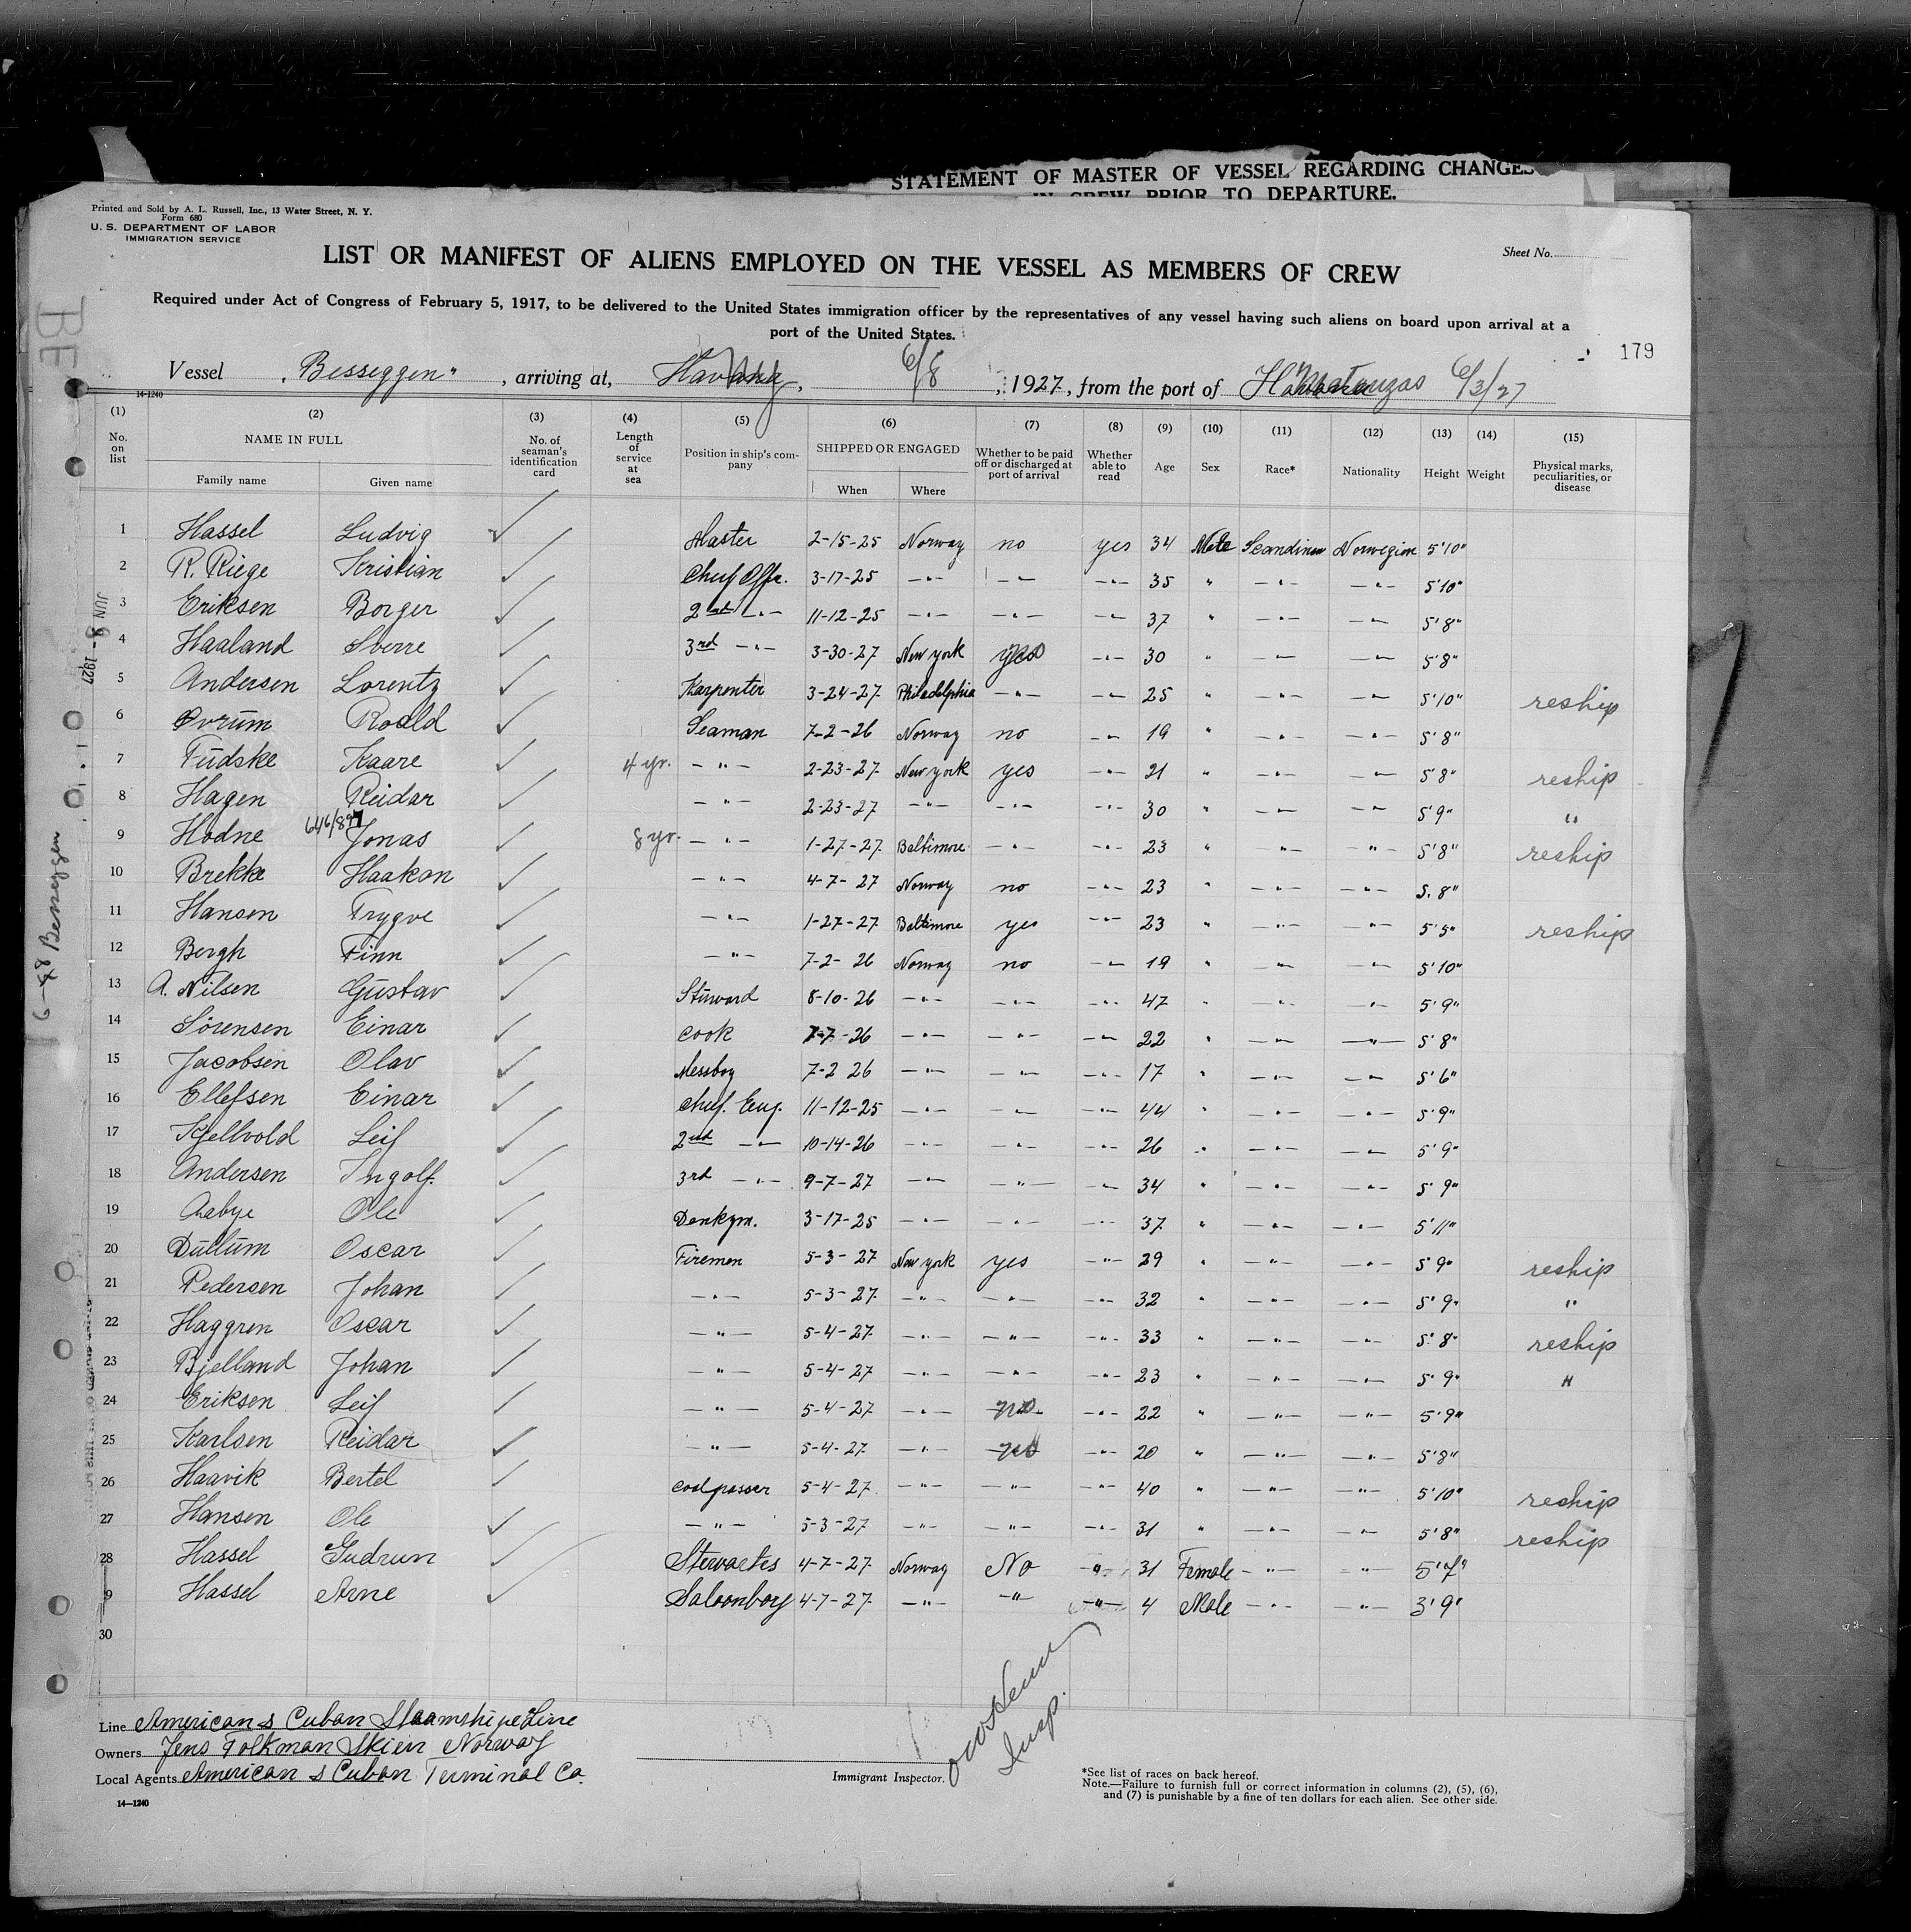 STATEMENT OF MASTER OF VESSEL REGARDING CHANGES
IN CREW PRIOR TO DEPARTURE.
Printed and Sold by A. L. Russell, Inc., 13 Water Street, N. Y.
Form 680
U. S. DEPARTMENT OF LABOR
IMMIGRATION SERVICE
Sheet No.
LIST OR MANIFEST OF ALIENS EMPLOYED ON THE VESSEL AS MEMBERS OF CREW
Required under Act of Congress of February 5, 1917, to be delivered to the United States immigration officer by the representatives of any vessel having such aliens on board upon arrival at a
port of the United States.
179
Vessel "Besseggen", arriving at, 6/8, 1927, from the port of Matanzas 6/3/27
14-1240
(1) (2) (3) (4) (5) (6) (7) (8) (9) (10) (11) (12) (13) (14) (15)
No. on list NAME IN FULL No. of seaman's identification card Length of service at sea Position in ship's company SHIPPED OR ENGAGED Whether to be paid off or discharged at port of arrival Whether able to read Age Sex Race* Nationality Height Weight Physical marks, peculiarities, or disease
Family name Given name When Where
1 Hassel Ludvig Master 2-15-25 Norway no yes 34 Male Scandinav Norwegian 5'10"
2 R. Riege Kristian Chief Offr. 3-17-25 -"- -"- -"- 35 " -"- -"- 5'10"
3 Eriksen Borger 2nd -"- 11-12-25 -"- -"- -"- 37 " -"- -"- 5'8"
4 Haaland Sverre 3rd -"- 3-30-27 New york yes -"- 30 " -"- -"- 5'8"
5 Andersen Lorentz Karpenter 3-24-27 Philadelphia -"- -"- 25 " -"- -"- 5'10" reship
6 Ovrum Roald Seaman 7-2-26 Norway no -"- 19 " -"- -"- 5'8"
7 Fudske Kaare 4 yr. -"- 2-23-27 New york yes -"- 21 " -"- -"- 5'8" reship
8 Hagen Reidar -"- 2-23-27 -"- -"- -"- 30 " -"- -"- 5'9" "
9 Hodne 646/897 Jonas 8 yr. -"- 1-27-27 Baltimore -"- -"- 23 " -"- -"- 5'8" reship
10 Brekke Haakon -"- 4-7-27 Norway no -"- 23 " -"- -"- 5.8"
11 Hansen Trygve -"- 1-27-27 Baltimore yes -"- 23 " -"- -"- 5'5" reship
12 Bergh Finn -"- 7-2-26 Norway no -"- 19 " -"- -"- 5'10"
13 A. Nilsen Gustav Stuward 8-10-26 -"- -"- -"- 47 " -"- -"- 5'9"
14 Sörensen Einar Cook 7-7-26 -"- -"- -"- 22 " -"- -"- 5'8"
15 Jacobsen Olav Messboy 7-2 26 -"- -"- -"- 17 " -"- -"- 5'6"
16 Ellefsen Einar Chief. Eng. 11-12-25 -"- -"- -"- 44 " -"- -"- 5'9"
17 Kjellvold Leif 2nd -"- 10-14-26 -"- -"- -"- 26 " -"- -"- 5'9"
18 Andersen Ingolf. 3rd -"- 9-7-27 -"- -"- -"- 34 " -"- -"- 5'9"
19 Aabye Ole Donkym. 3-17-25 -"- -"- -"- 37 " -"- -"- 5'11"
20 Dullum Oscar Firemen 5-3-27 New york yes -"- 29 " -"- -"- 5'9" reship
21 Pedersen Johan -"- 5-3-27 -"- -"- -"- 32 " -"- -"- 5'9" "
22 Haggren Oscar -"- 5-4-27 -"- -"- -"- 33 " -"- -"- 5'8" reship
23 Bjelland Johan -"- 5-4-27 -"- -"- -"- 23 " -"- -"- 5'9" "
24 Eriksen Leif -"- 5-4-27 -"- -"- 22 " -"- -"- 5'9"
25 Karlsen Reidar -"- 5-4-27 -"- yes -"- 20 " -"- -"- 5'8"
26 Haavik Bertel Coalpasser 5-4-27 -"- -"- -"- 40 " -"- -"- 5'10" reship
27 Hansen Ole -"- 5-3-27 -"- -"- -"- 31 " -"- -"- 5'8" reship
28 Hassel Gudrun Stewartes 4-7-27 Norway No -"- 31 Female -"- -"- 5'7"
9 Hassel Arne Saloonboy 4-7-27 -"- -"- -"- 4 Male -"- -"- 3'9"
30
Line American & Cuban Steamshipe Line
Owners Jens Folkman Skien Norway
Local Agents American & Cuban Terminal Co.
14—1240
Immigrant Inspector.
Insp.
*See list of races on back hereof.
Note.—Failure to furnish full or correct information in columns (2), (5), (6),
and (7) is punishable by a fine of ten dollars for each alien. See other side.
BE
JUN 8 - 1927
6-8 Besseggen